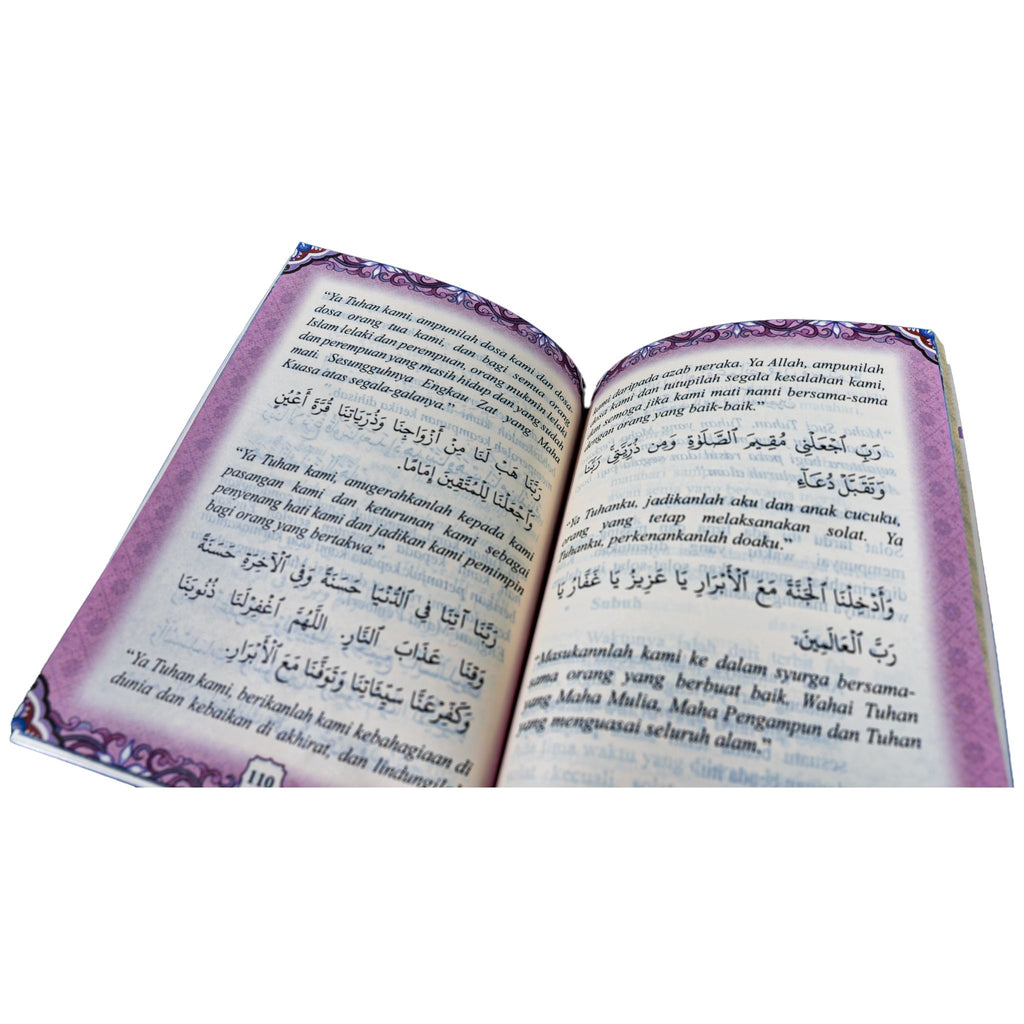 “Ya Tuhan kami, ampunilah dosa kami dan
dosa orang tua kami, dan bagi semua dosa
Islam lelaki dan perempuan, orang mukmin lelaki
dan perempuan yang masih hidup dan yang sudah
mati. Sesungguhnya Engkau Zat yang Maha
Kuasa atas segala-galanya.”
رَبَّنَا هَبْ لَنَا مِنْ أَزْوَاجِنَا وَذُرِّيَاتِنَا قُرَّةَ أَعْيُنٍ
وَاجْعَلْنَا لِلْمُتَّقِينَ إِمَامًا.
“Ya Tuhan kami, anugerahkanlah kepada kami
pasangan kami dan keturunan kami sebagai
penyenang hati kami dan jadikan kami pemimpin
bagi orang yang bertakwa.”
رَبَّنَا آتِنَا فِي ٱلدُّنْيَا حَسَنَةً وَفِي ٱلْآخِرَةِ حَسَنَةً
وَقِنَا عَذَابَ ٱلنَّارِ. اللَّهُمَّ ٱغْفِرْلَنَا ذُنُوبَنَا
وَكَفِّرْعَنَّا سَيِّئَاتِنَا وَتَوَفَّنَا مَعَ ٱلْأَبْرَارِ.
“Ya Tuhan kami, berikanlah kami kebahagiaan di
dunia dan kebaikan di akhirat, dan
110
kami daripada azab neraka. Ya Allah, ampunilah
dosa kami dan tutupilah segala kesalahan kami,
dan semoga jika kami mati nanti bersama-sama
dengan orang yang baik-baik.”
رَبِّ ٱجْعَلْنِي مُقِيمَ ٱلصَّلَوٰةِ وَمِن ذُرِّيَّتِي رَبَّنَا
وَتَقَبَّلْ دُعَآءِ
“Ya Tuhanku, jadikanlah aku dan anak cucuku,
orang yang tetap melaksanakan solat. Ya
Tuhanku, perkenankanlah doaku.”
وَأَدْخِلْنَا ٱلْجَنَّةَ مَعَ ٱلْأَبْرَارِ يَا عَزِيزُ يَا غَفَّارُ يَا
رَبَّ ٱلْعَالَمِينَ.
“Masukannlah kami ke dalam syurga bersama-
sama orang yang berbuat baik. Wahai Tuhan
yang Maha Mulia, Maha Pengampun dan Tuhan
yang menguasai seluruh alam.”